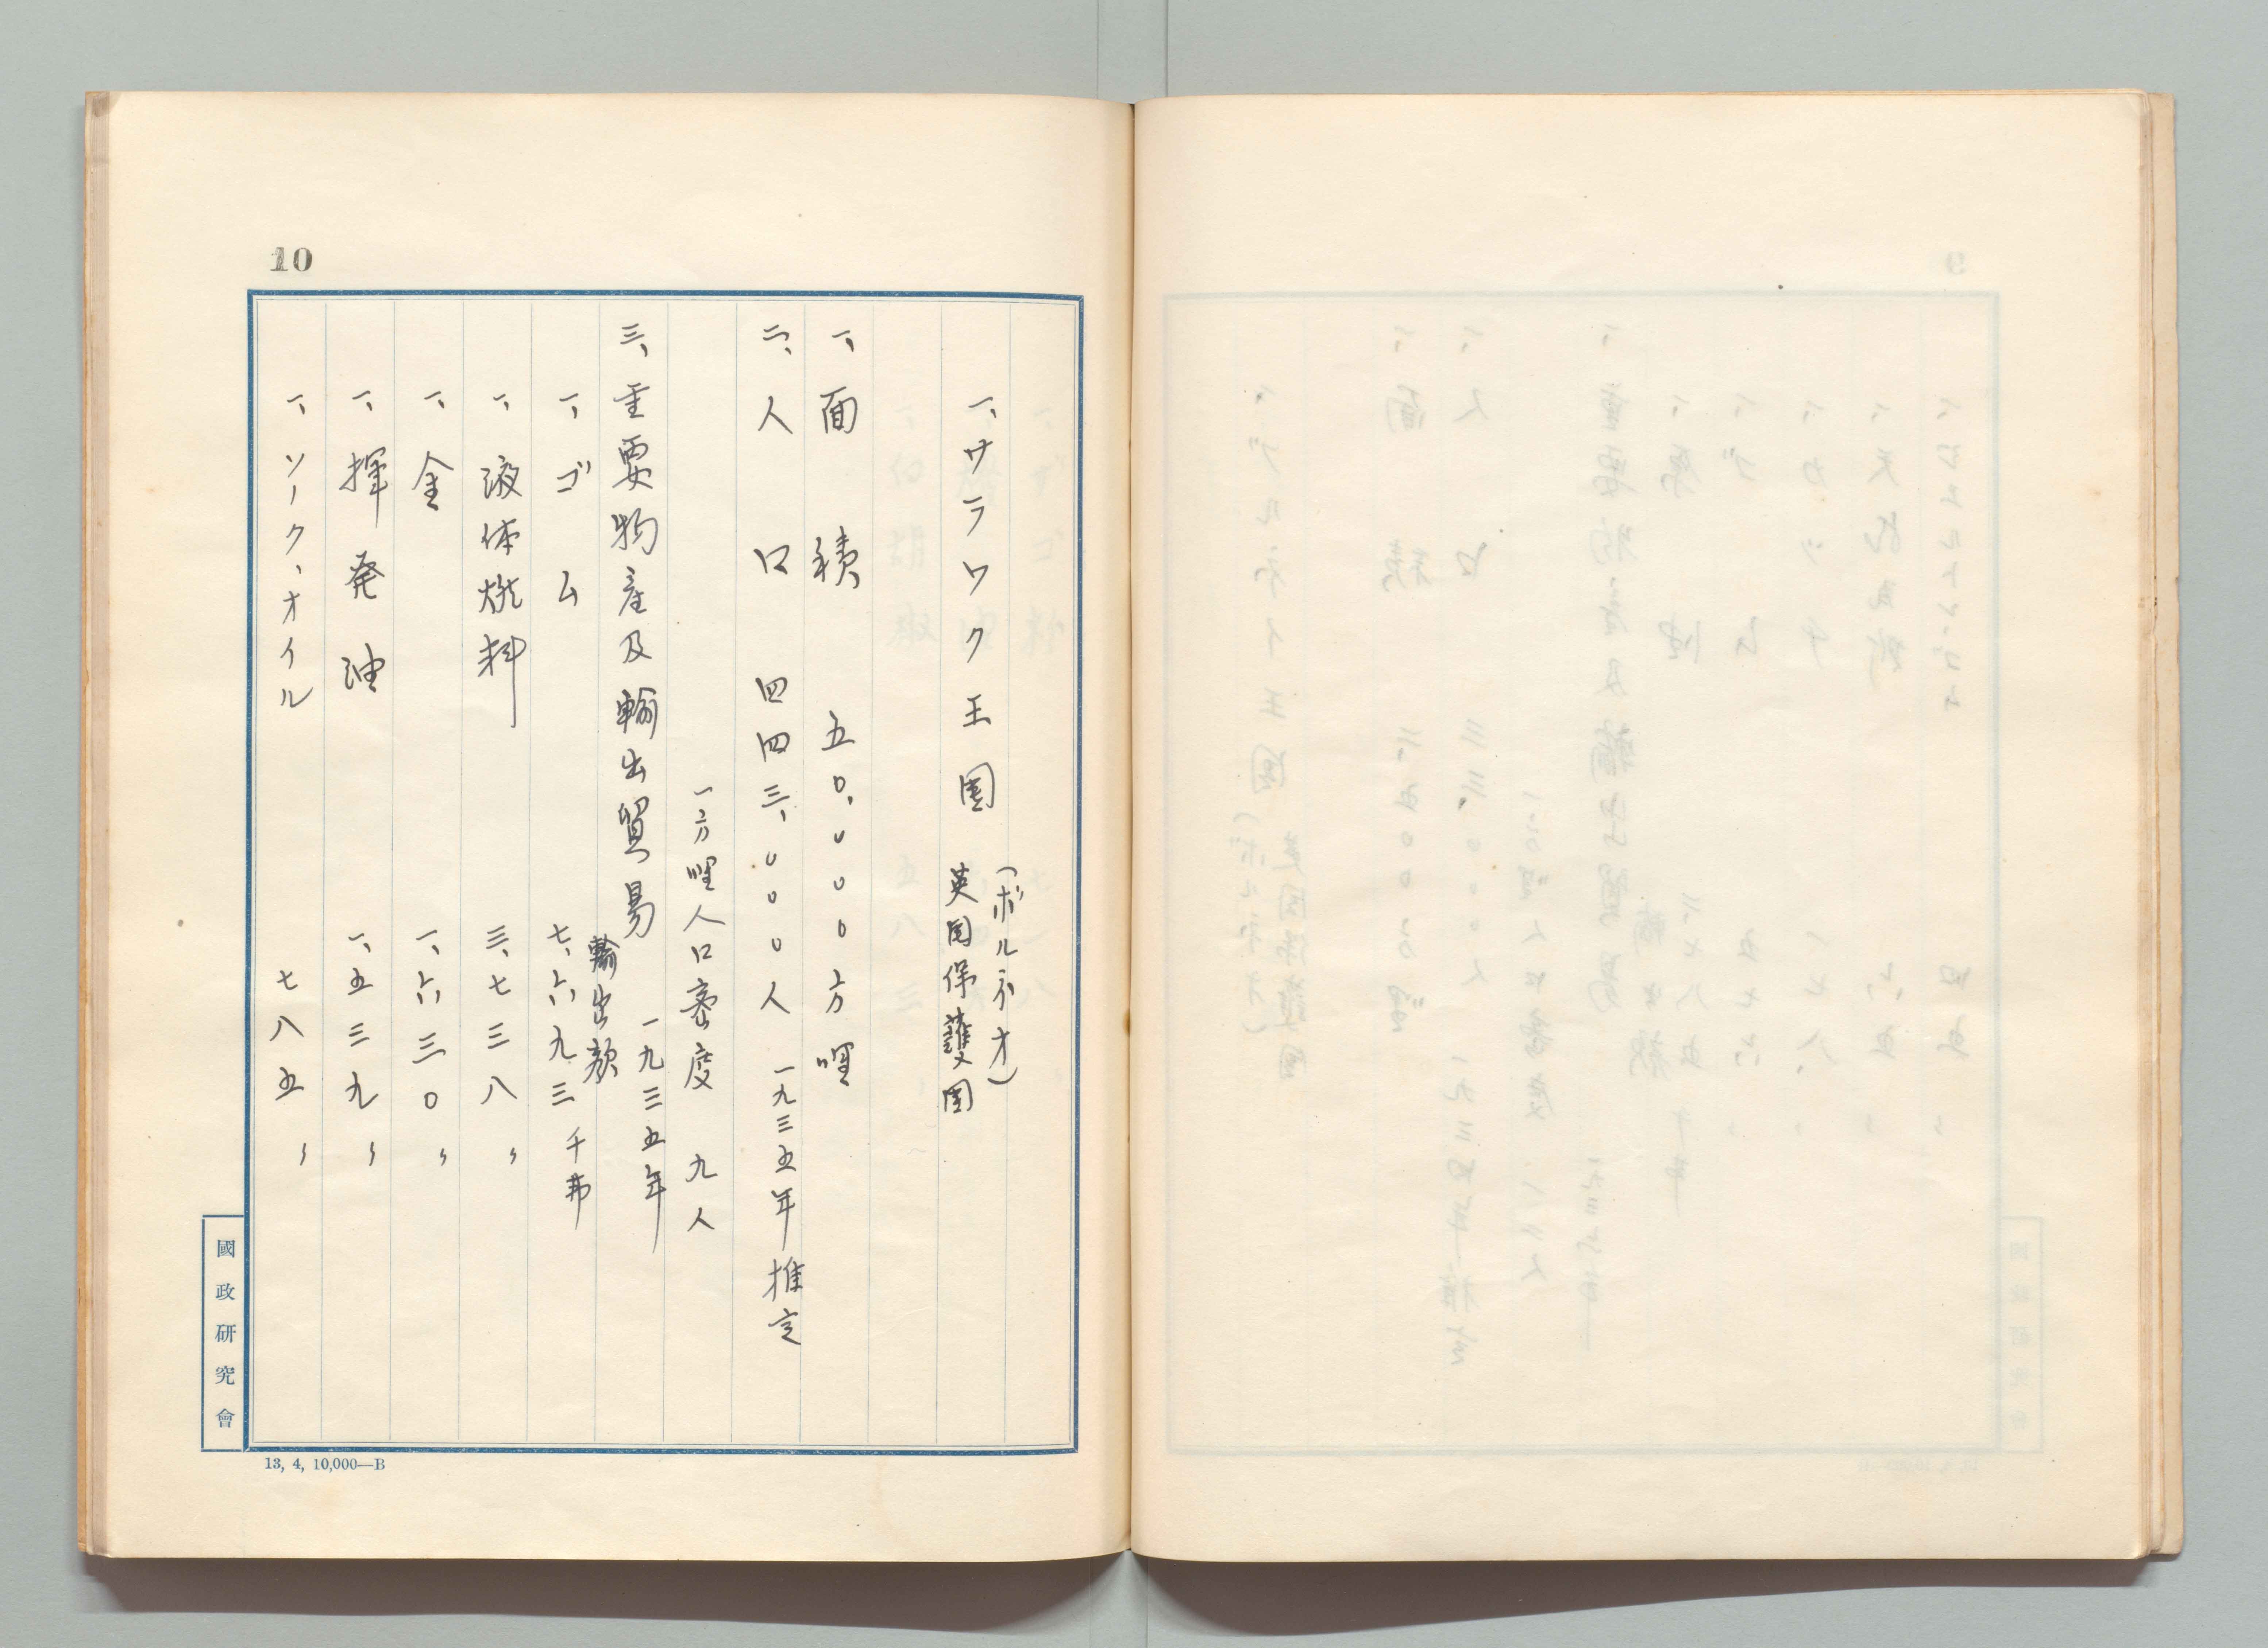 10
一、サラワク王国（ボルネオ）英国保護国
一、面積　五〇、〇〇〇方哩
二、人口　四四三、〇〇〇人　一九三五年推定
一方哩人口密度　九人
三、重要物産及輸出貿易　一九三五年
輸出額
一、ゴム　七、六九三千弗
一、液体燃料　三、七三八〃
一、金　一、六三〇〃
一、揮発油　一、五三九〃
一、ソーク、オイル　七八五〃
國政研究會
13, 4, 10,000—B